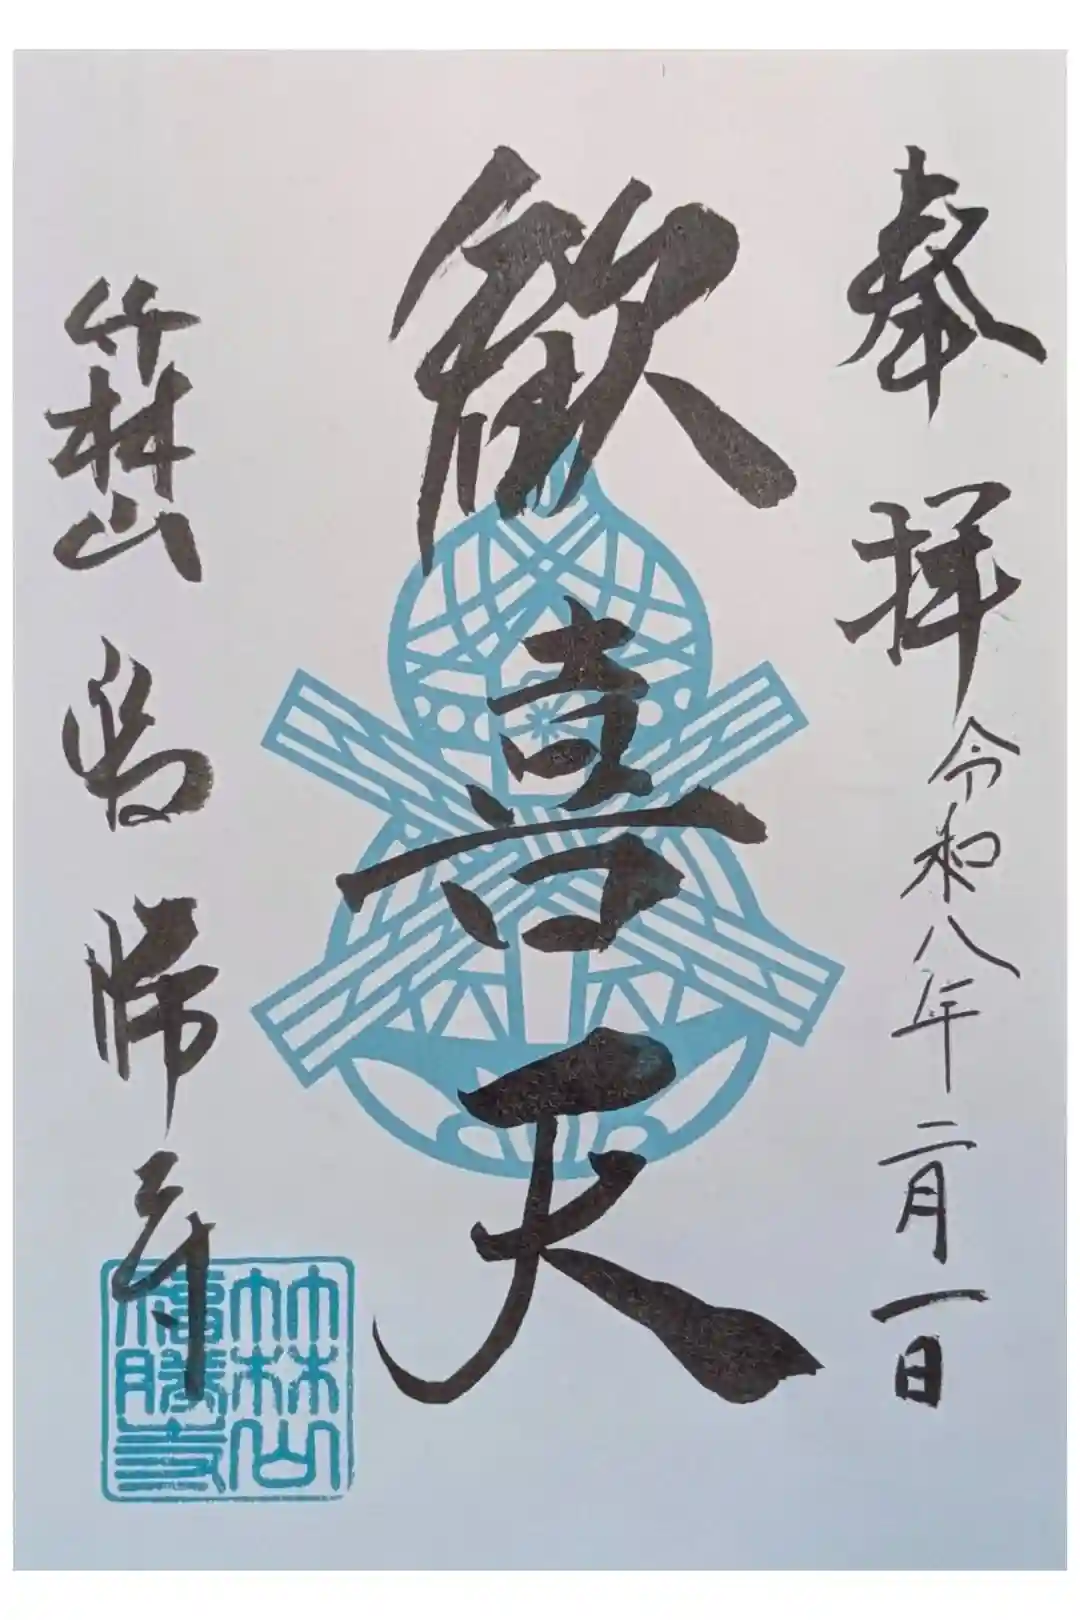 奉拝 令和八年二月一日
歓喜天
竹林山 福勝寺
竹林山
福勝寺